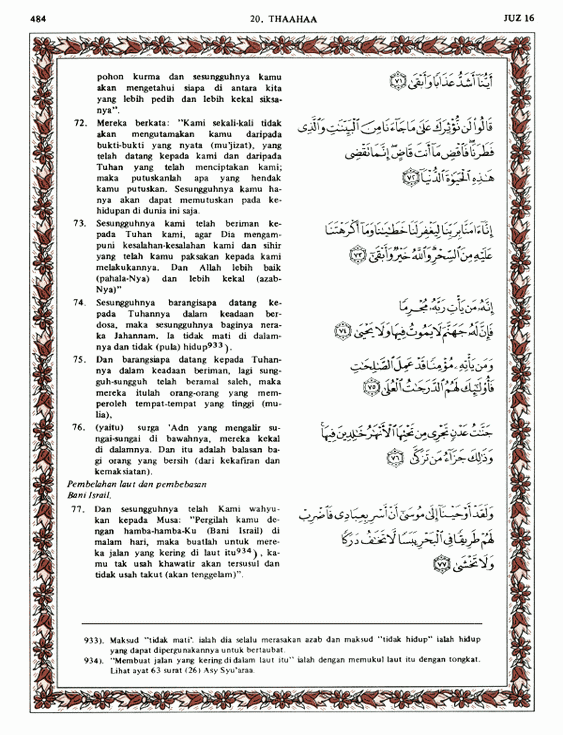 484
20. THAAHAA
JUZ 16
pohon kurma dan sesungguhnya kamu
akan mengetahui siapa di antara kita
yang lebih pedih dan lebih kekal siksa-
nya".
أَيُّنَا أَشَدُّ عَذَابًا وَأَبْقَىٰ ﴿٧١﴾
72. Mereka berkata: "Kami sekali-kali tidak
akan mengutamakan kamu daripada
bukti-bukti yang nyata (mu'jizat), yang
telah datang kepada kami dan daripada
Tuhan yang telah menciptakan kami;
maka putuskanlah apa yang hendak
kamu putuskan. Sesungguhnya kamu ha-
nya akan dapat memutuskan pada ke-
hidupan di dunia ini saja.
قَالُوا لَن نُّؤْثِرَكَ عَلَىٰ مَا جَاءَنَا مِنَ الْبَيِّنَٰتِ وَالَّذِى
فَطَرَنَا فَاقْضِ مَا أَنتَ قَاضٍ إِنَّمَا تَقْضِى
هَٰذِهِ الْحَيَوٰةَ الدُّنْيَا ﴿٧٢﴾
73. Sesungguhnya kami telah beriman ke-
pada Tuhan kami, agar Dia mengam-
puni kesalahan-kesalahan kami dan sihir
yang telah kamu paksakan kepada kami
melakukannya. Dan Allah lebih baik
(pahala-Nya) dan lebih kekal (azab-
Nya)"
إِنَّا ءَامَنَّا بِرَبِّنَا لِيَغْفِرَ لَنَا خَطَٰيَٰنَا وَمَا أَكْرَهْتَنَا
عَلَيْهِ مِنَ السِّحْرِ وَاللَّهُ خَيْرٌ وَأَبْقَىٰ ﴿٧٣﴾
74. Sesungguhnya barangsiapa datang ke-
pada Tuhannya dalam keadaan ber-
dosa, maka sesungguhnya baginya nera-
ka Jahannam. Ia tidak mati di dalam-
nya dan tidak (pula) hidup933).
إِنَّهُ مَن يَأْتِ رَبَّهُ مُجْرِمًا
فَإِنَّ لَهُ جَهَنَّمَ لَا يَمُوتُ فِيهَا وَلَا يَحْيَىٰ ﴿٧٤﴾
75. Dan barangsiapa datang kepada Tuhan-
nya dalam keadaan beriman, lagi sung-
guh-sungguh telah beramal saleh, maka
mereka itulah orang-orang yang mem-
peroleh tempat-tempat yang tinggi (mu-
lia),
وَمَن يَأْتِهِ مُؤْمِنًا قَدْ عَمِلَ الصَّٰلِحَٰتِ
فَأُولَٰئِكَ لَهُمُ الدَّرَجَٰتُ الْعُلَىٰ ﴿٧٥﴾
76. (yaitu) surga 'Adn yang mengalir su-
ngai-sungai di bawahnya, mereka kekal
di dalamnya. Dan itu adalah balasan ba-
gi orang yang bersih (dari kekafiran dan
kemaksiatan).
جَنَّٰتُ عَدْنٍ تَجْرِى مِن تَحْتِهَا الْأَنْهَٰرُ خَٰلِدِينَ فِيهَا
وَذَٰلِكَ جَزَاءُ مَن تَزَكَّىٰ ﴿٧٦﴾
Pembelahan laut dan pembebasan
Bani Israil.
77. Dan sesungguhnya telah Kami wahyu-
kan kepada Musa: "Pergilah kamu de-
ngan hamba-hamba-Ku (Bani Israil) di
malam hari, maka buatlah untuk mere-
ka jalan yang kering di laut itu934), ka-
mu tak usah khawatir akan tersusul dan
tidak usah takut (akan tenggelam)".
وَلَقَدْ أَوْحَيْنَا إِلَىٰ مُوسَىٰ أَنْ أَسْرِ بِعِبَادِى فَاضْرِبْ
لَهُمْ طَرِيقًا فِى الْبَحْرِ يَبَسًا لَّا تَخَٰفُ دَرَكًا
وَلَا تَخْشَىٰ ﴿٧٧﴾
933). Maksud "tidak mati". ialah dia selalu merasakan azab dan maksud "tidak hidup" ialah hidup
yang dapat dipergunakannya untuk bertaubat.
934). "Membuat jalan yang kering di dalam laut itu" ialah dengan memukul laut itu dengan tongkat.
Lihat ayat 63 surat (26) Asy Syu'araa.